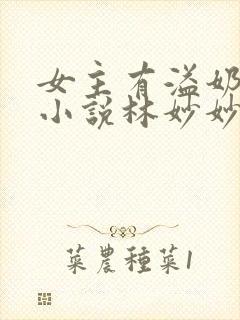 女主有溢奶
小說林妙妙
菜農種菜1